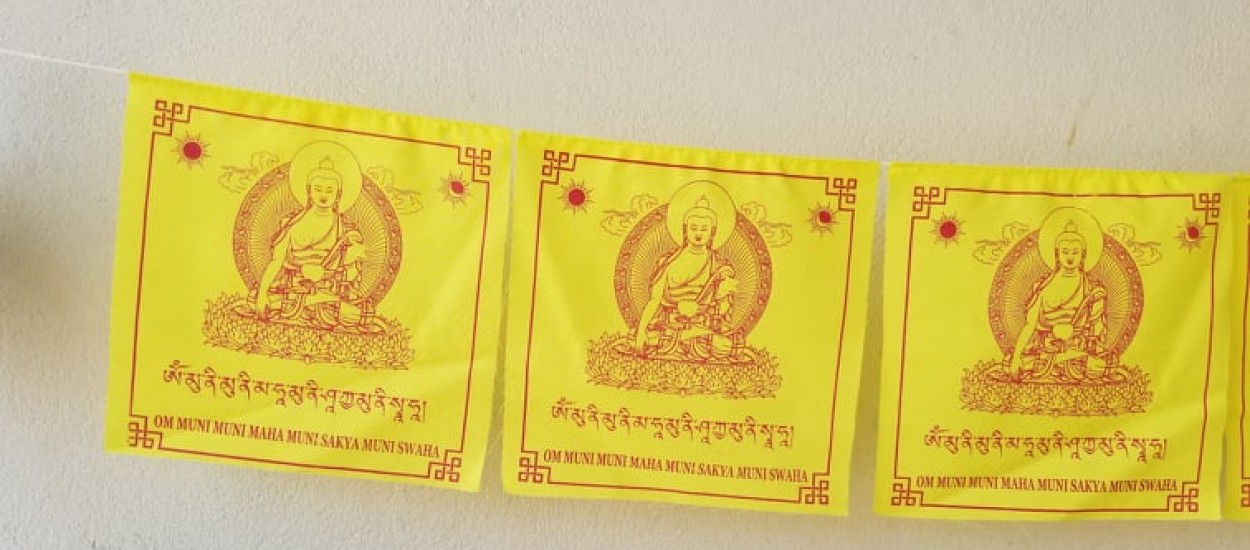 ༀ་མུ་ནི་མུ་ནི་མ་ཧཱ་མུ་ནི་ཤཱཀྱ་མུ་ནི་སྭཱ་ཧཱ།
OM MUNI MUNI MAHA MUNI SAKYA MUNI SWAHA
ༀ་མུ་ནི་མུ་ནི་མ་ཧཱ་མུ་ནི་ཤཱཀྱ་མུ་ནི་སྭཱ་ཧཱ།
OM MUNI MUNI MAHA MUNI SAKYA MUNI SWAHA
ༀ་མུ་ནི་མུ་ནི་མ་ཧཱ་མུ་ནི་ཤཱཀྱ་མུ་ནི་སྭཱ་ཧཱ།
OM MUNI MUNI MAHA MUNI SAKYA MUNI SWAHA